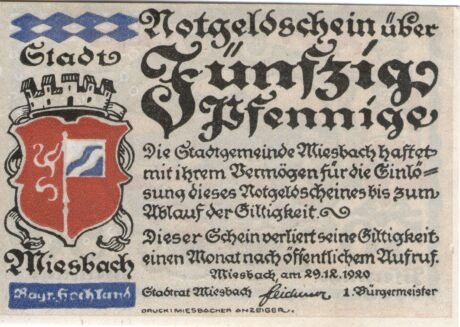 Notgeldschein über
Fünfzig
Pfennige
Stadt
Miesbach
Bayr. Hochland
Die Stadtgemeinde Miesbach haftet
mit ihrem Vermögen für die Einlö=
sung dieses Notgeldscheines bis zum
Ablauf der Giltigkeit.
Dieser Schein verliert seine Giltigkeit
einen Monat nach öffentlichem Aufruf.
Miesbach, am 29.12.1920
Stadtrat Miesbach 1. Bürgermeister
DRUCK: MIESBACHER ANZEIGER.